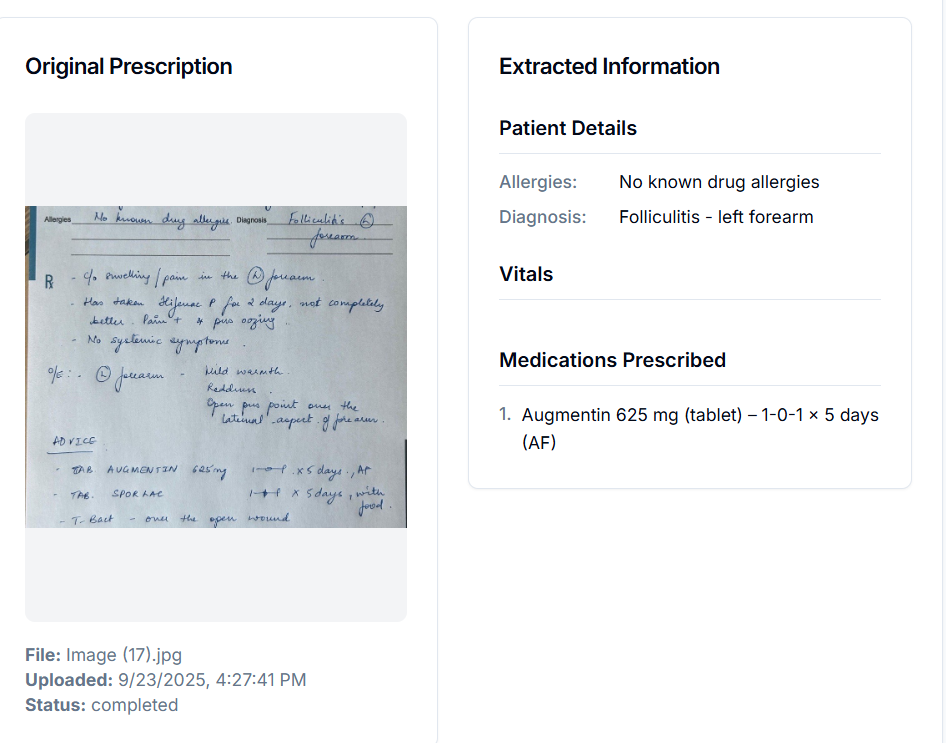 Original Prescription
Allergies No known drug allergies Diagnosis Folliculitis (L)
forearm
R - c/o swelling / pain in the (L) forearm.
- Has taken Hifenac P for 2 days, not completely
better. Pain + & pus oozing.
- No systemic symptoms.
O/E: - (L) forearm - Mild warmth.
Redness.
Open pus point over the
lateral aspect of forearm.
ADVICE
- TAB. AUGMENTIN 625mg x 5 days., AF
- TAB. SPORLAC x 5 days, with
food.
- T-Bact - over the open wound
File: Image (17).jpg
Uploaded: 9/23/2025, 4:27:41 PM
Status: completed
Extracted Information
Patient Details
Allergies: No known drug allergies
Diagnosis: Folliculitis - left forearm
Vitals
Medications Prescribed
1. Augmentin 625 mg (tablet) – 1-0-1 × 5 days
(AF)